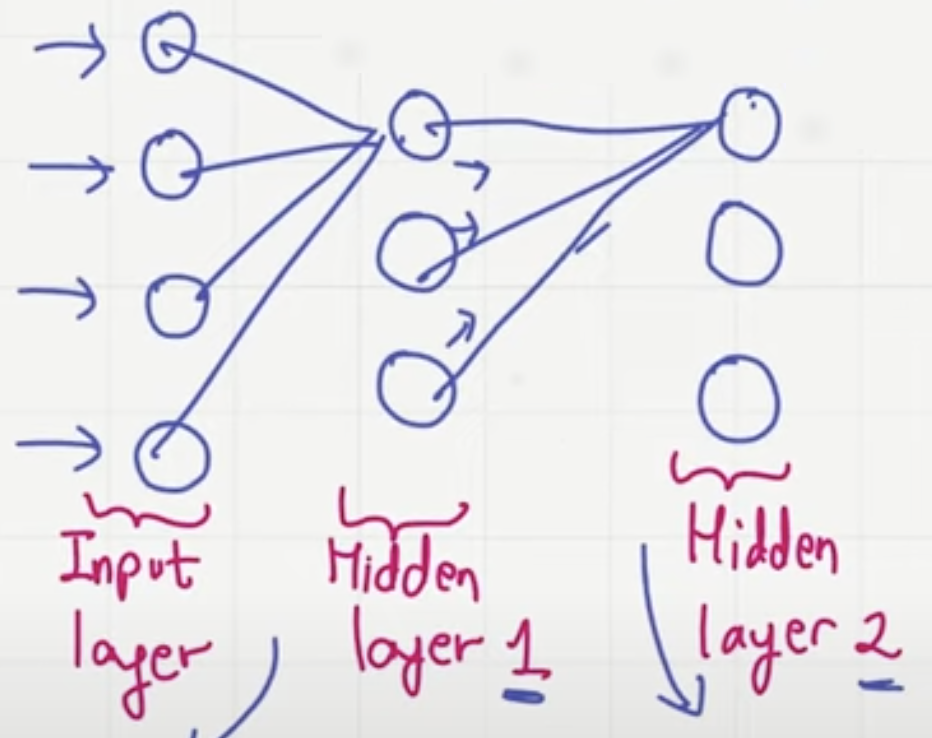 Input
layer
Hidden
layer 1
Hidden
layer 2